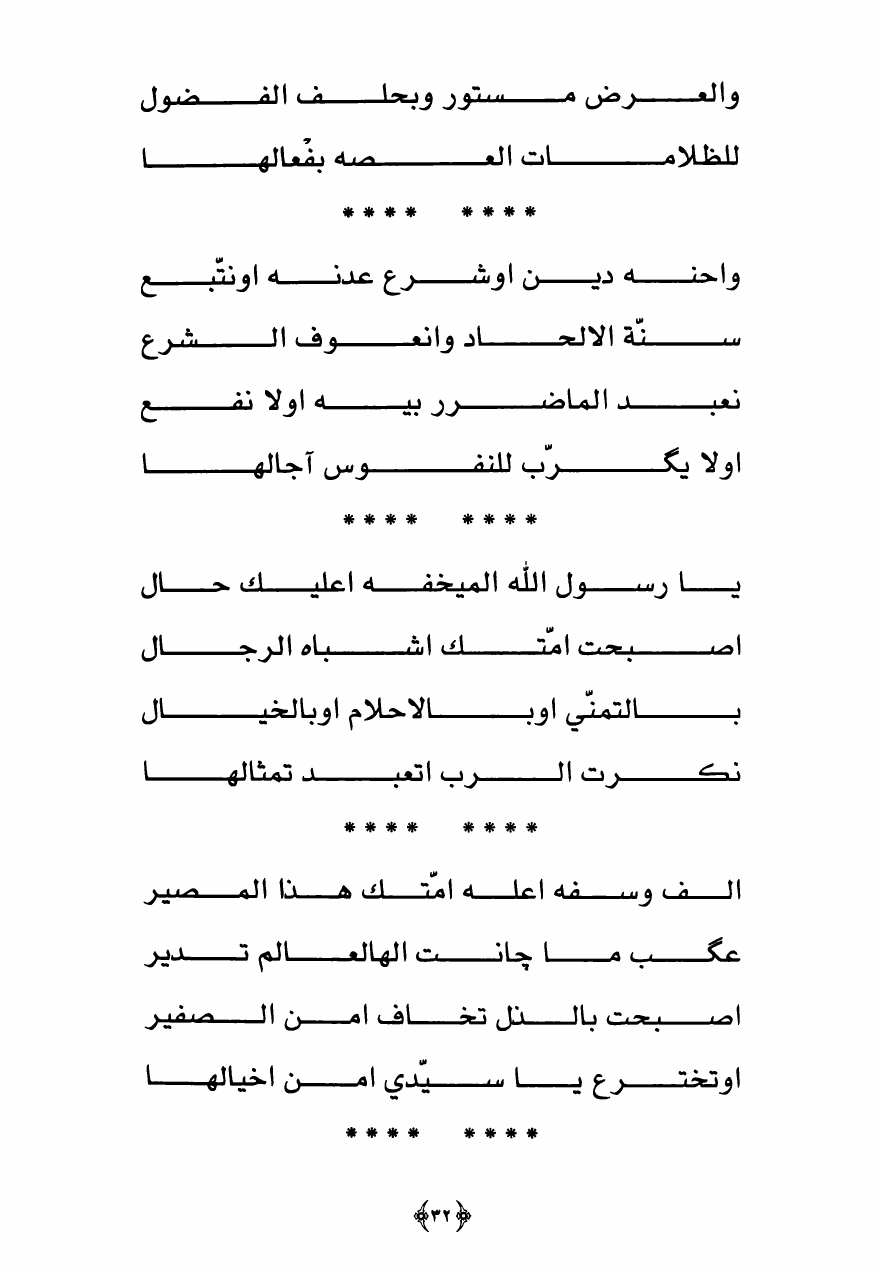 والعرض مستور وبحلف الفضول
للظلامات العصه بفْعالها
**** ****
واحنه دين اوشرع عدنه اونتّبع
سنّة الالحاد وانعوف الشرع
نعبد الماضرر بيه اولا نفع
اولا يگرّب للنفوس آجالها
**** ****
يا رسول الله الميخفه اعليك حال
اصبحت امّتك اشباه الرجال
بالتمنّي اوبالاحلام اوبالخيال
نكرت الرب اتعبد تمثالها
**** ****
الف وسفه اعله امّتك هذا المصير
عگب ما چانت الهالعالم تدير
اصبحت بالذل تخاف امن الصفير
اوتخترع يا سيّدي امن اخيالها
**** ****
﴿٣٢﴾